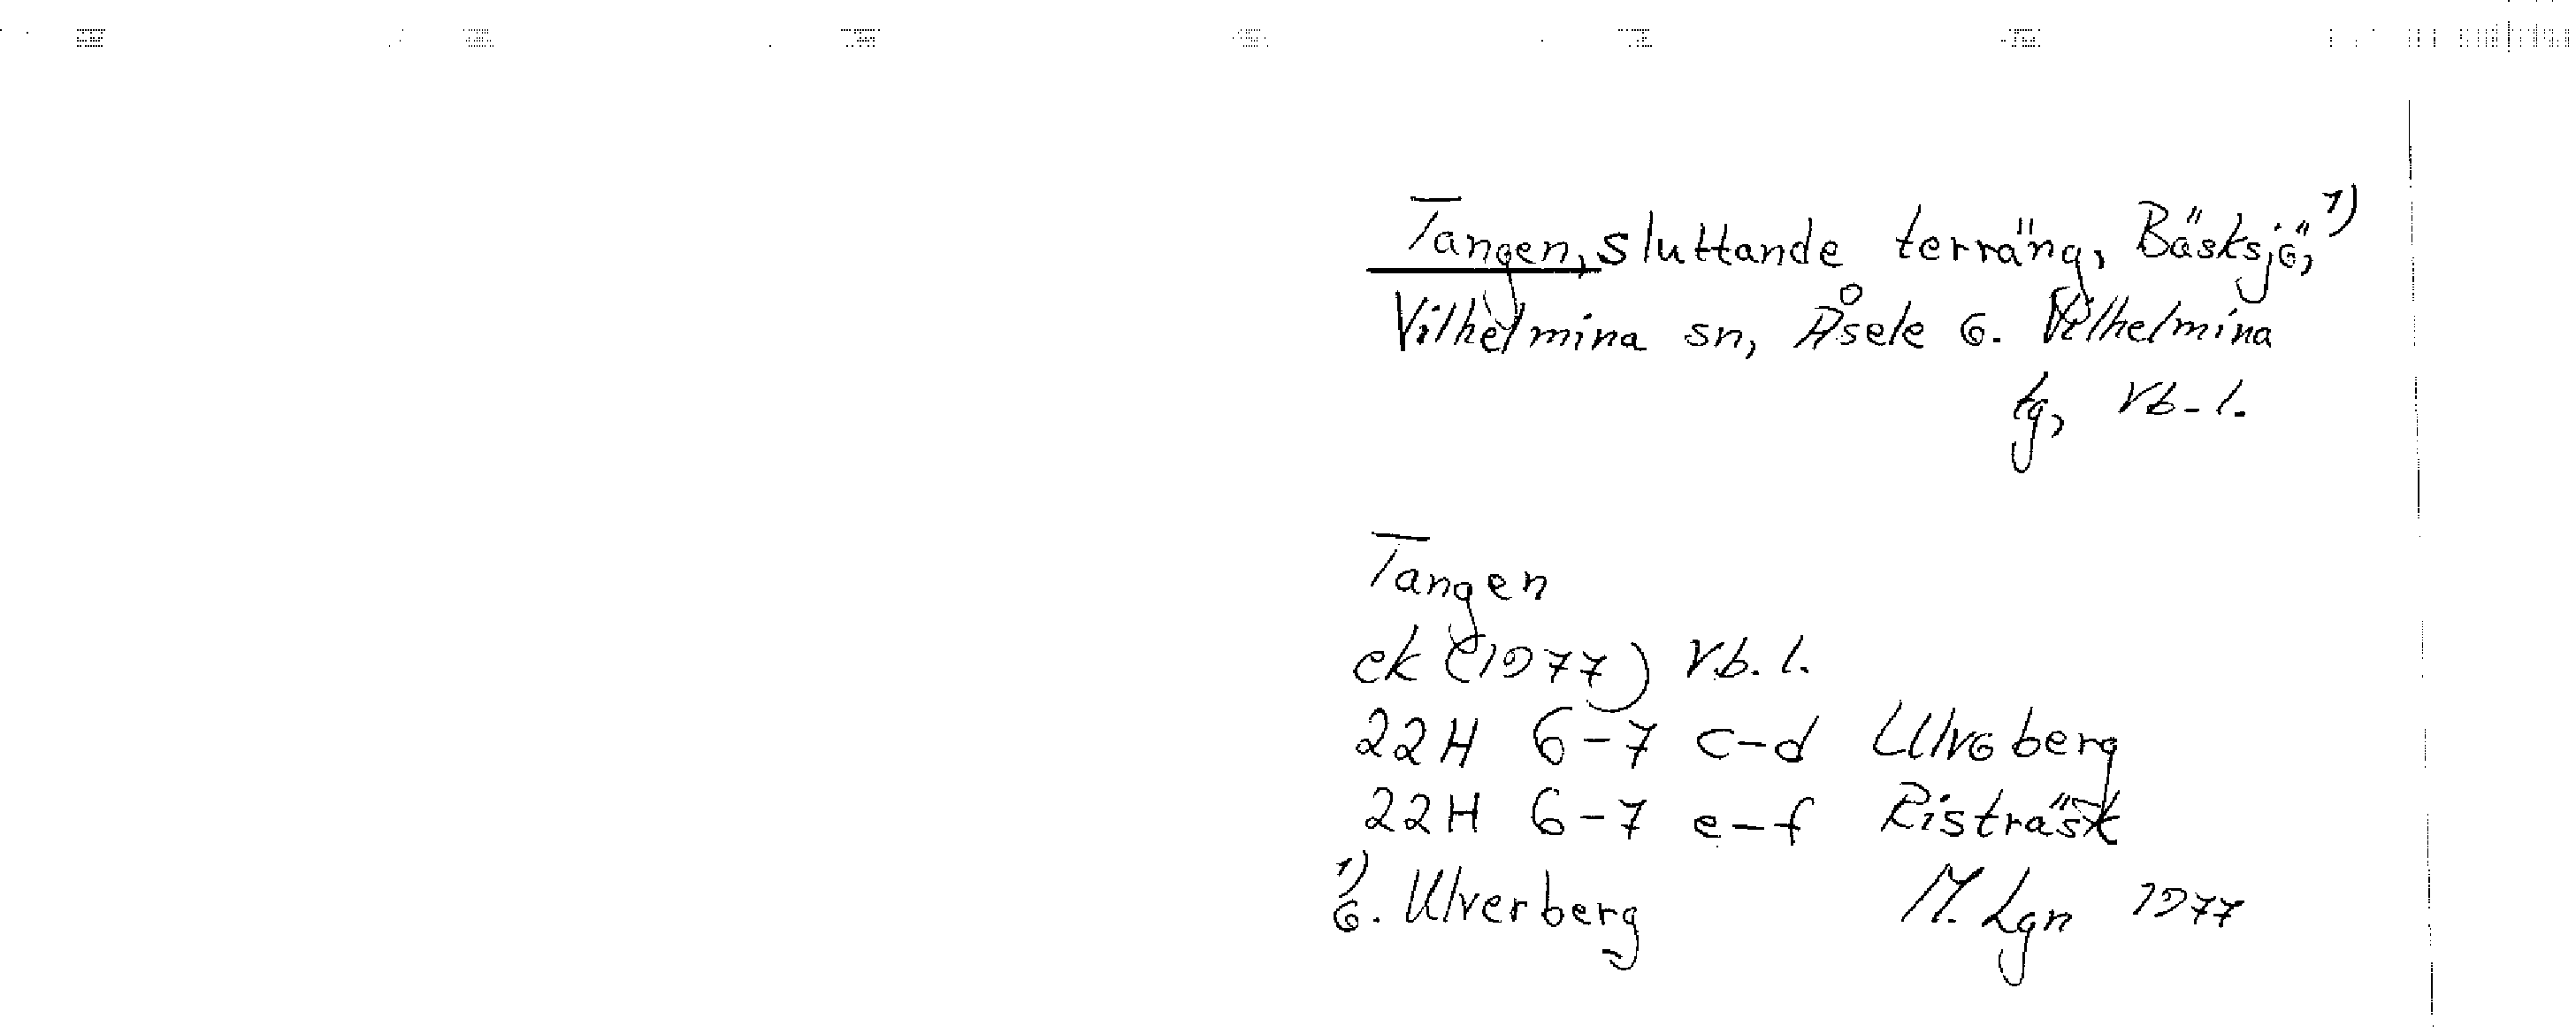 Tangen, sluttande terräng, Bäsksjö, 1)
Vilhelmina sn, Åsele o. Vilhelmina
tg, Vb-l.
Tangen
ek (1977) Vb. l.
22H 6-7 c-d Ulvoberg
22H 6-7 e-f Risträsk
1)
o. Ulverberg M. Lgn 1977